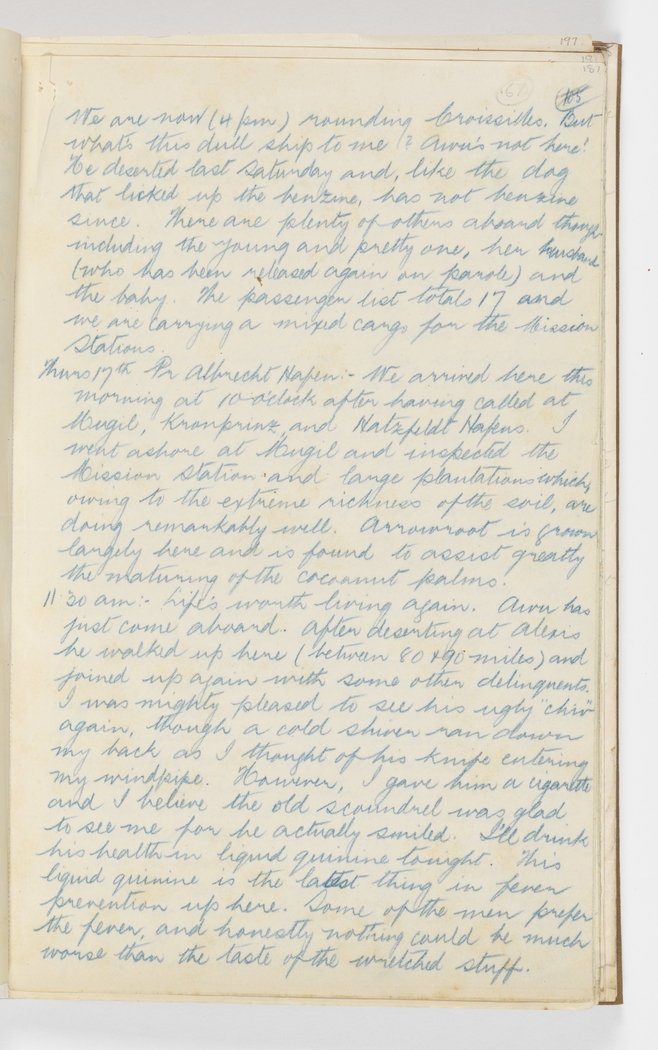 197
187
61
105
We are now (4 pm) rounding Croissilles. But
what's this dull ship to me? Awu's not here!
He deserted last Saturday and, like the dog
that licked up the benzine, has not benzine
since. There are plenty of others aboard though
including the young and pretty one, her husband
(who has been released again on parole) and
the baby. The passenger list totals 17 and
we are carrying a mixed cargo for the Mission
Stations.
Thurs 17th Pr Albrecht Hafen:- We arrived here this
morning at 10 oclock after having called at
Mugil, Kronprinz, and Hatzfeldt Hafens. I
went ashore at Mugil and inspected the
Mission Station and large plantations which,
owing to the extreme richness of the soil, are
doing remarkably well. Arrowroot is grown
largely here and is found to assist greatly
the maturing of the cocoanut palms.
11.30 am:- Life's worth living again. Awu has
just come aboard. After deserting at Alexis
he walked up here (between 80 & 90 miles) and
joined up again with some other delinquents.
I was mighty pleased to see his ugly "chiv"
again, though a cold shiver ran down
my back as I thought of his knife entering
my windpipe. However, I gave him a cigarette
and I believe the old scoundrel was glad
to see me for he actually smiled. I'll drink
his health in liquid quinine tonight. This
liquid quinine is the latest thing in fever
prevention up here. Some of the men prefer
the fever, and honestly nothing could be much
worse than the taste of the wretched stuff.